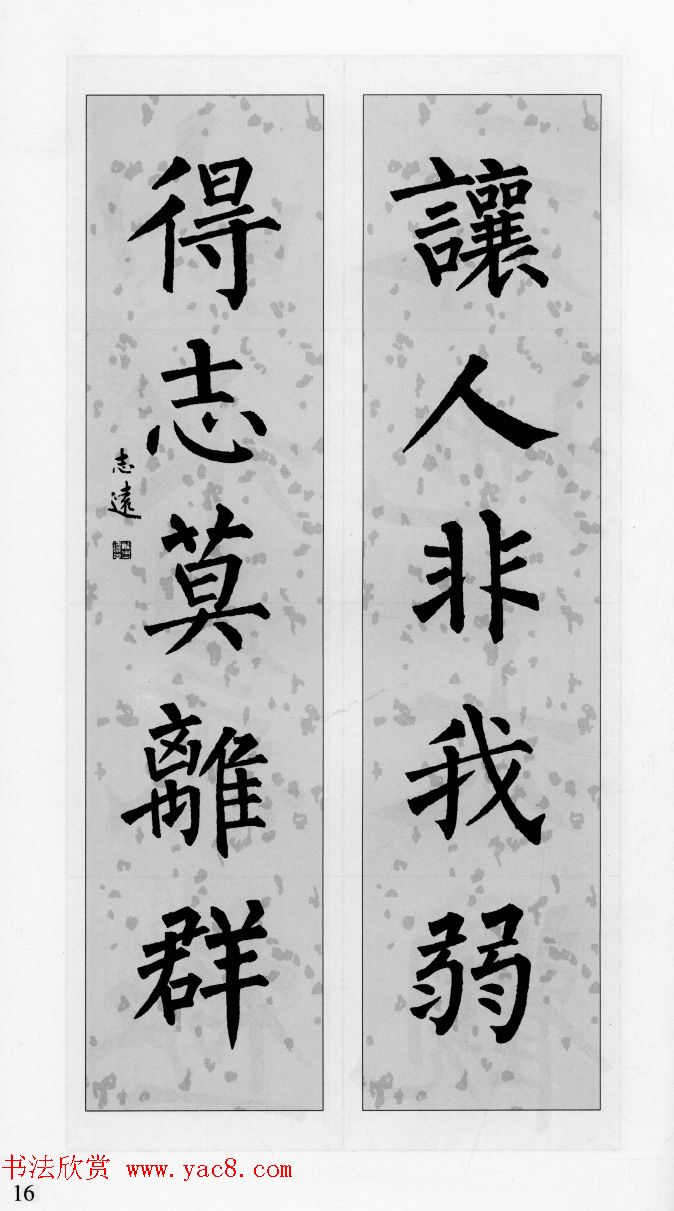 讓人非我弱
得志莫離群
志遠
书法欣赏 www.yac8.com
16